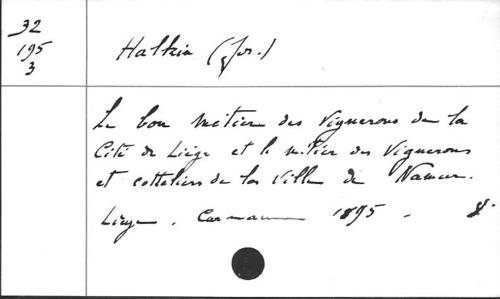 32
195
3
Halkin (Jos.)
Le bon métier des Vignerons de la
Cité de Liège et le métier des Vignerons
et cotteliers de la Ville de Namur.
Liège. Cormaux 1895. 8°